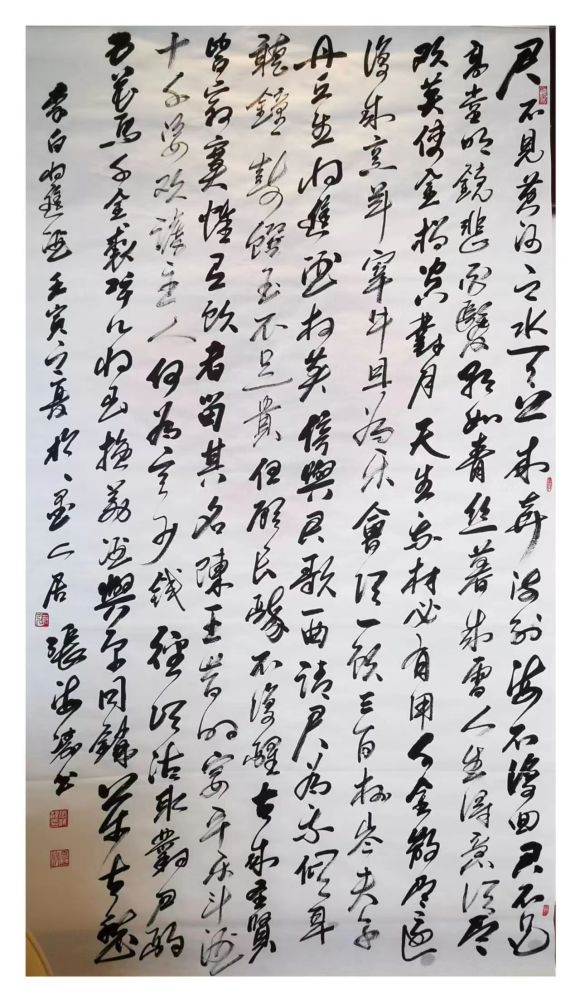 君不见黄河之水天上来奔流到海不復回君不见
高堂明鏡悲白髮朝如青丝暮成雪人生得意须尽
欢莫使金樽空對月天生我材必有用千金散尽還
復来烹羊宰牛且为乐會须一饮三百杯岑夫子
丹丘生将進酒杯莫停與君歌一曲請君为我倾耳
聽鐘鼓馔玉不足貴但願长醉不復醒古来圣賢
皆寂寞惟有饮者留其名陳王昔时宴平乐斗酒
十千恣欢謔主人何为言少钱徑须沽取對君酌
五花馬千金裘呼儿将出换美酒與尔同銷萬古愁
李白将進酒壬寅之夏於墨人居
張海书